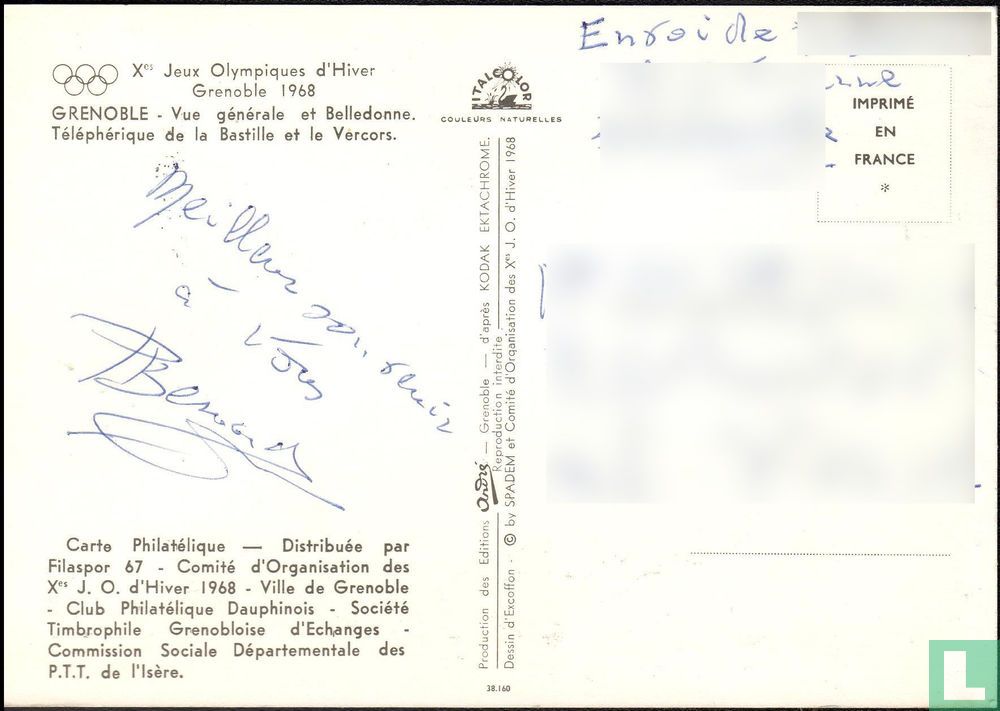 Xes Jeux Olympiques d'Hiver
Grenoble 1968
GRENOBLE - Vue générale et Belledonne.
Téléphérique de la Bastille et le Vercors.
Meilleur souvenir
à vous
Bernard
Carte Philatélique — Distribuée par
Filaspor 67 - Comité d'Organisation des
Xes J. O. d'Hiver 1968 - Ville de Grenoble
- Club Philatélique Dauphinois - Société
Timbrophile Grenobloise d'Echanges -
Commission Sociale Départementale des
P.T.T. de l'Isère.
ITALCOLOR
COULEURS NATURELLES
Production des Editions André — Grenoble — d'après KODAK EKTACHROME.
Reproduction interdite
Dessin d'Excoffon - © by SPADEM et Comité d'Organisation des Xes J. O. d'Hiver 1968
38.160
Envoi de
IMPRIMÉ
EN
FRANCE
*
L